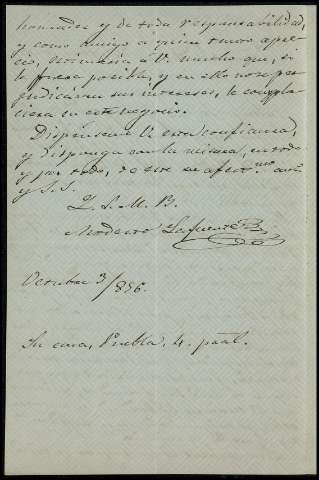 honradez y de toda responsabilidad,
y como amigo á quien tanto apre
cio, estimaria á V. mucho que, si
le fuese posible, y en ello no se per
judicaran sus intereses, le compla
ciera en este negocio.
Dispénseme V. esta confianza,
y disponga con la misma, en todo
y por todo, de este su afectmo. am.
y S.S.
Q. S. M. B.
Modesto Lafuente
Octubre 3/856.
Su casa, Puebla, 4. pral.